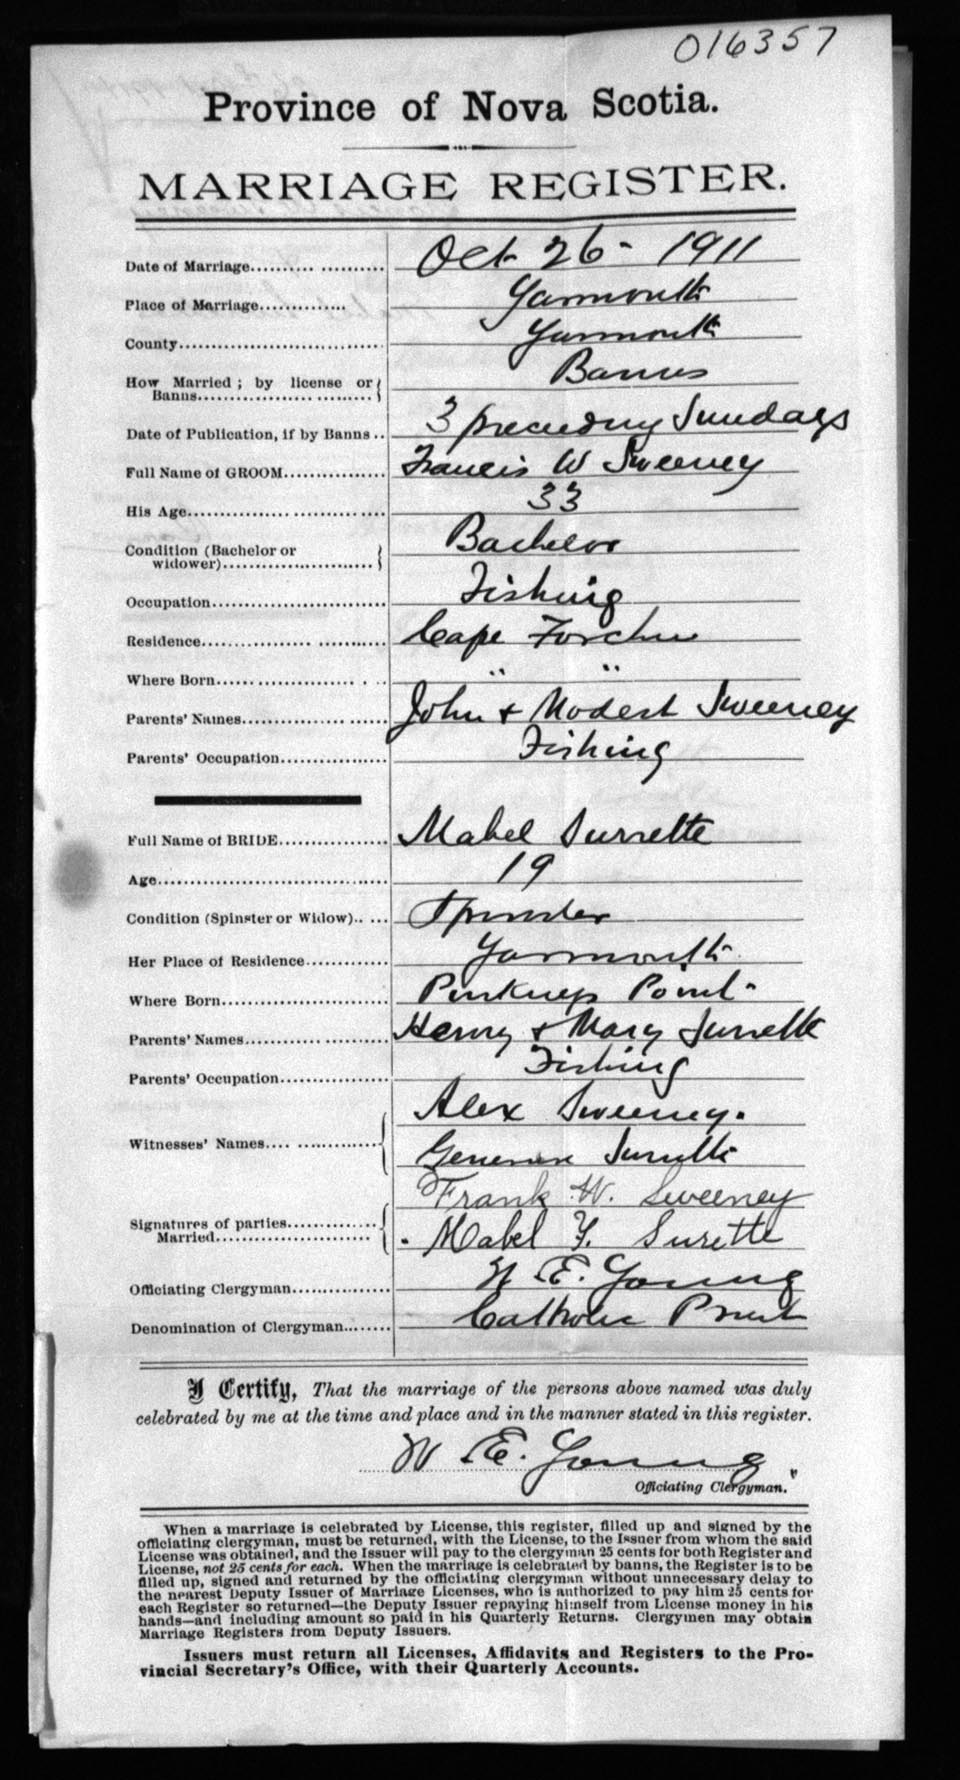 016357
Province of Nova Scotia.
MARRIAGE REGISTER.
Date of Marriage.......... Oct 26 - 1911
Place of Marriage............. Yarmouth
County............................. Yarmouth
How Married ; by license or Banns.......................... Banns
Date of Publication, if by Banns .. 3 preceding Sundays
Full Name of GROOM............... Francis W Sweeney
His Age............................. 33
Condition (Bachelor or widower)......................... Bachelor
Occupation............................. Fishing
Residence............................. Cape Forchu
Where Born............................. " "
Parents' Names...................... John & Modest Sweeney
Parents' Occupation.................. Fishing
Full Name of BRIDE.................. Mabel Surrette
Age.................................... 19
Condition (Spinster or Widow).. ... Spinster
Her Place of Residence............. Yarmouth
Where Born............................ Pinkneys Point
Parents' Names........................ Henry & Mary Surrette
Parents' Occupation.................. Fishing
Witnesses' Names.... .............. Alex Sweeney.
Surrette
Frank W. Sweeney
Signatures of parties Married.......................... Mabel Y. Surette
Officiating Clergyman................ W E. Young
Denomination of Clergyman........ Catholic Priest
I Certify, That the marriage of the persons above named was duly
celebrated by me at the time and place and in the manner stated in this register.
W E. Young
Officiating Clergyman.
When a marriage is celebrated by License, this register, filled up and signed by the
officiating clergyman, must be returned, with the License, to the Issuer from whom the said
License was obtained, and the Issuer will pay to the clergyman 25 cents for both Register and
License, not 25 cents for each. When the marriage is celebrated by banns, the Register is to be
filled up, signed and returned by the officiating clergyman without unnecessary delay to
the nearest Deputy Issuer of Marriage Licenses, who is authorized to pay him 25 cents for
each Register so returned—the Deputy Issuer repaying himself from License money in his
hands—and including amount so paid in his Quarterly Returns. Clergymen may obtain
Marriage Registers from Deputy Issuers.
Issuers must return all Licenses, Affidavits and Registers to the Pro-
vincial Secretary's Office, with their Quarterly Accounts.